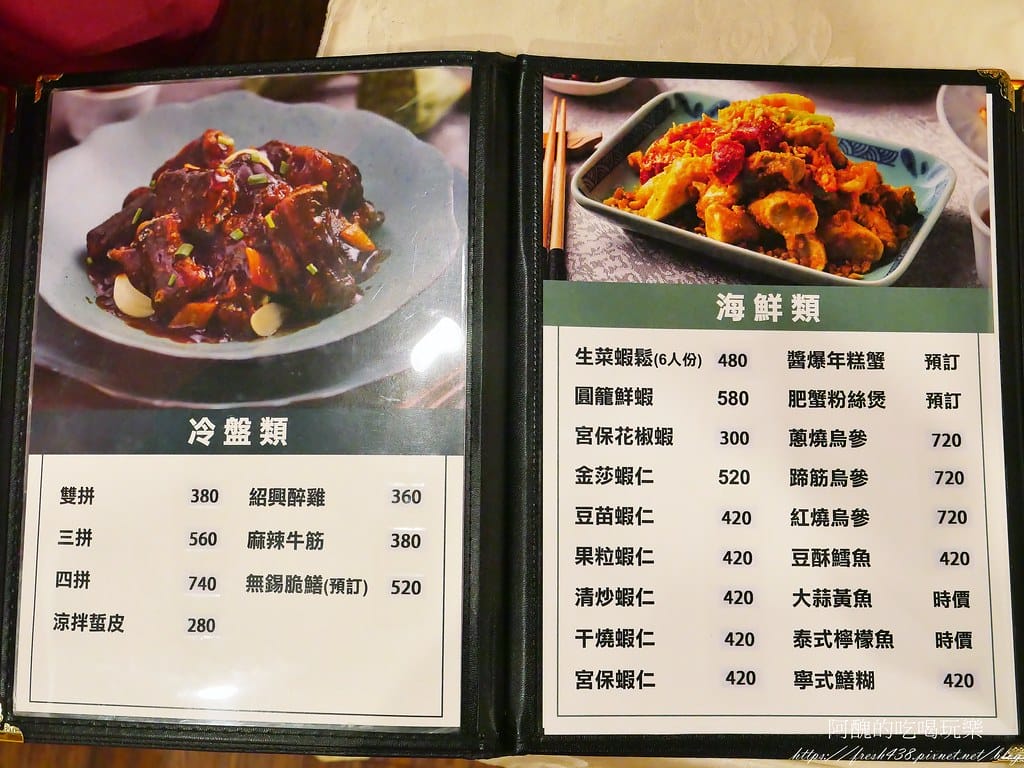 冷盤類
雙拼 380 紹興醉雞 360
三拼 560 麻辣牛筋 380
四拼 740 無錫脆鱔(預訂) 520
涼拌蜇皮 280
海鮮類
生菜蝦鬆(6人份) 480 醬爆年糕蟹 預訂
圓籠鮮蝦 580 肥蟹粉絲煲 預訂
宮保花椒蝦 300 蔥燒烏參 720
金莎蝦仁 520 蹄筋烏參 720
豆苗蝦仁 420 紅燒烏參 720
果粒蝦仁 420 豆酥鱈魚 420
清炒蝦仁 420 大蒜黃魚 時價
干燒蝦仁 420 泰式檸檬魚 時價
宮保蝦仁 420 寧式鱔糊 420
阿醜的吃喝玩樂
https://fresh438.pixnet.net/blog